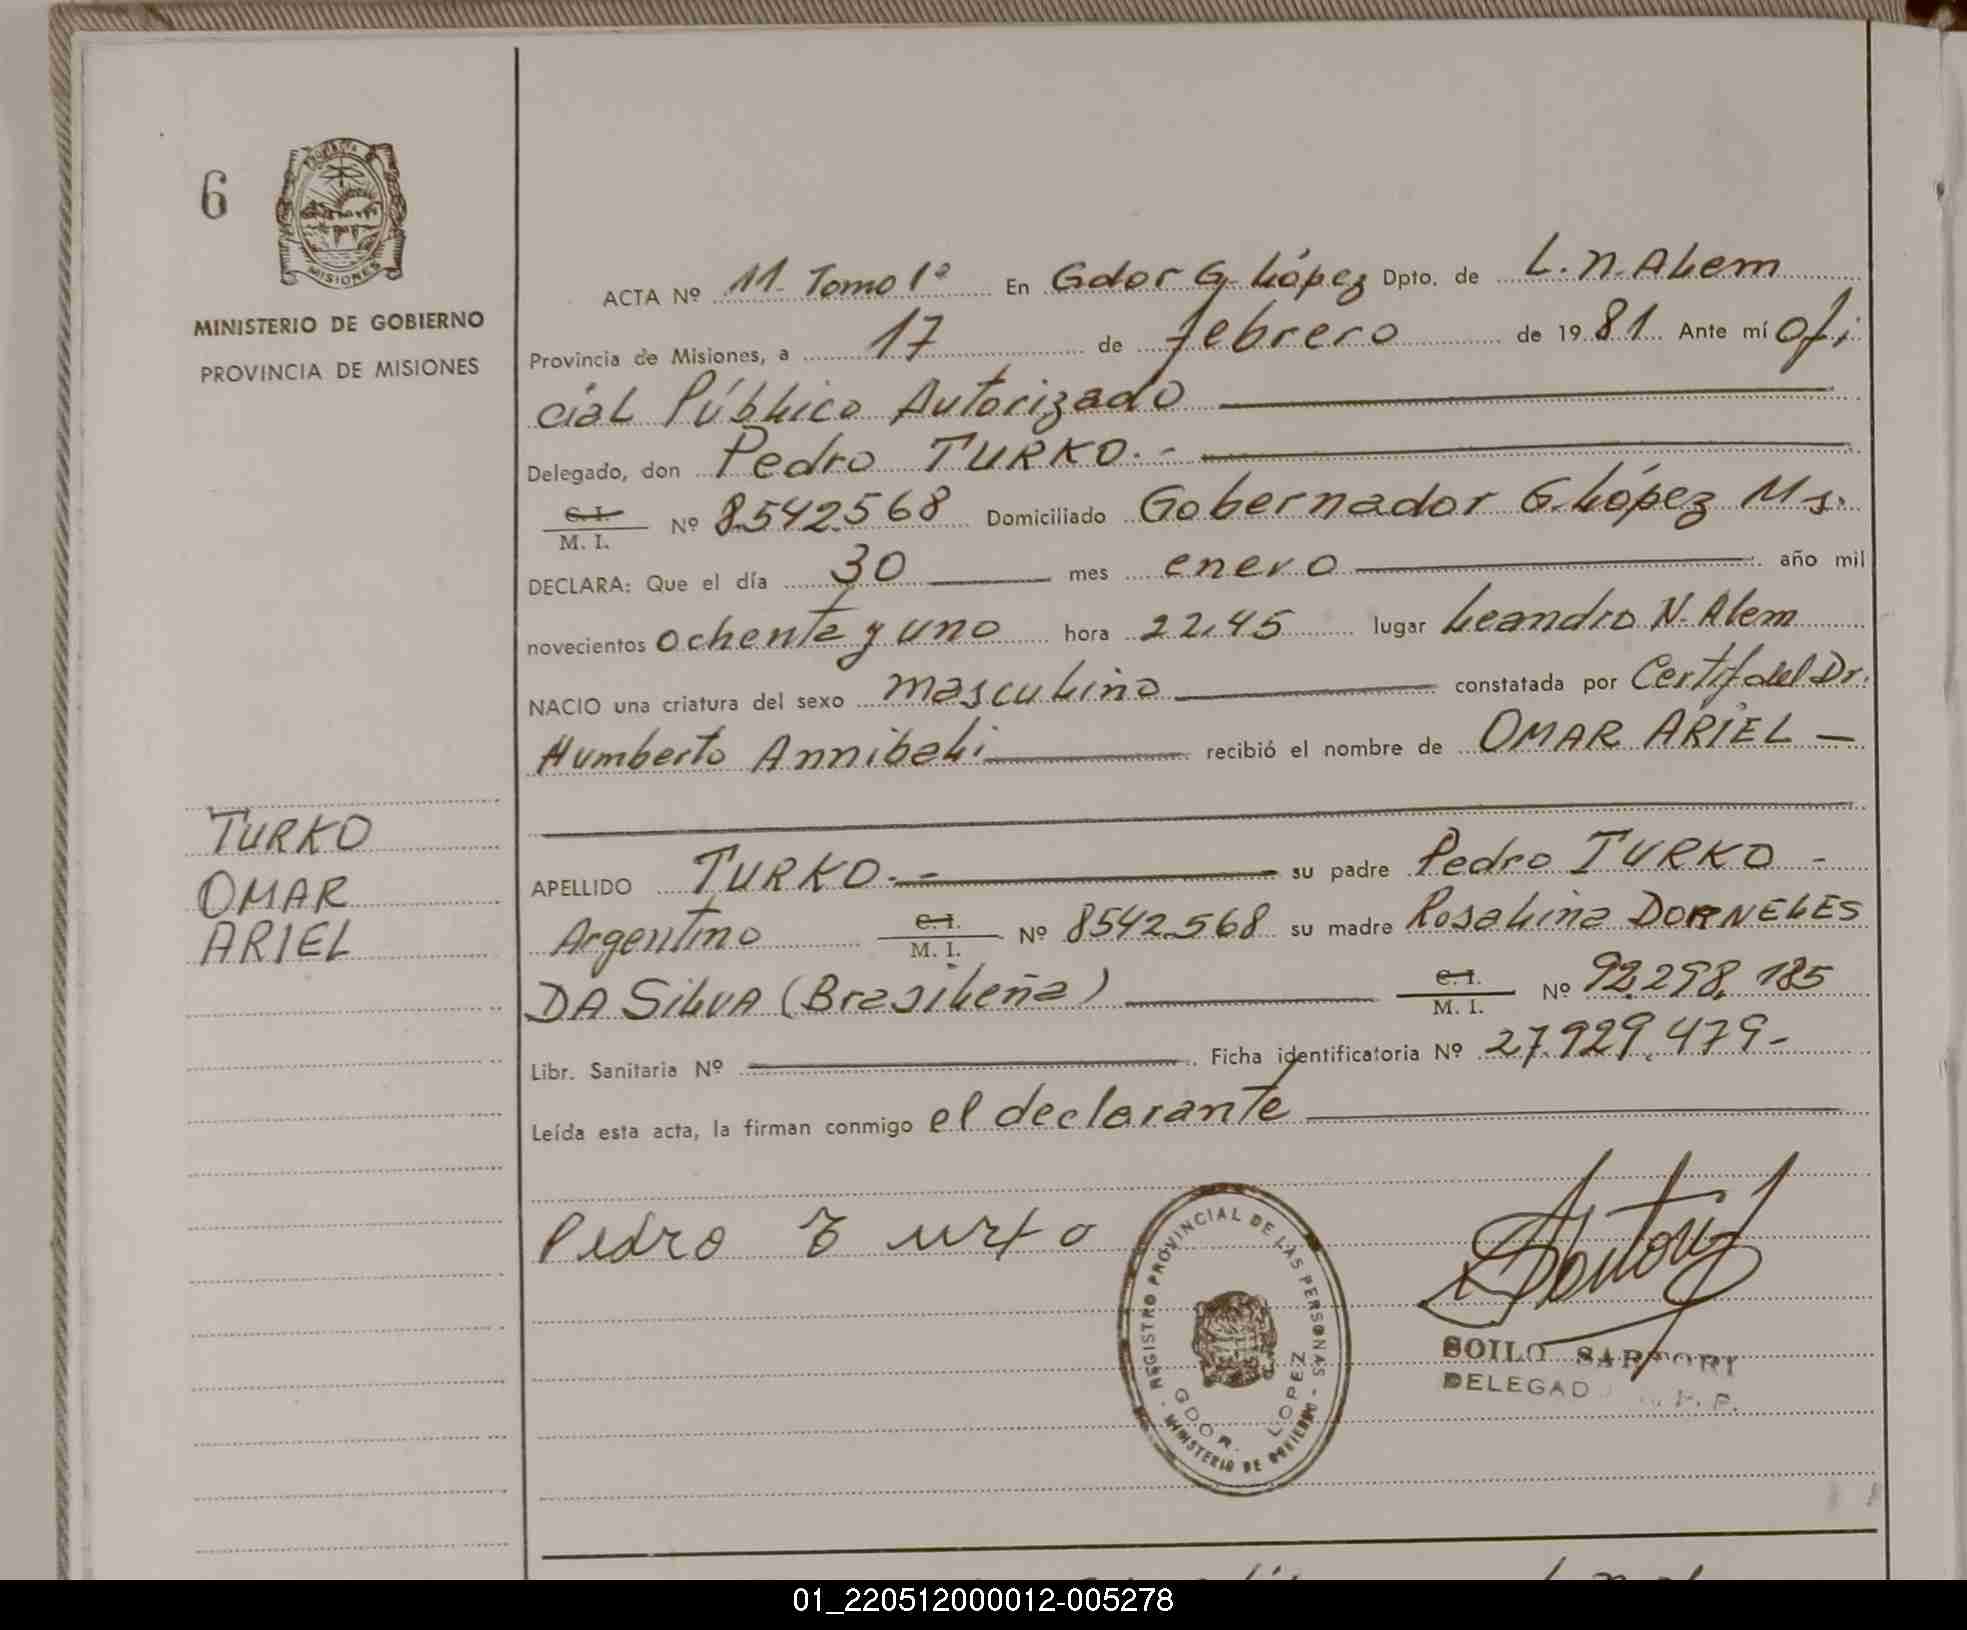 6
PROVINCIA
MISIONES
MINISTERIO DE GOBIERNO
PROVINCIA DE MISIONES
ACTA Nº 11. Tomo 1º En Gdor G. López Dpto. de L. N. Alem
Provincia de Misiones, a 17 de febrero de 1981 Ante mí ofi
cial Público Autorizado
Delegado, don Pedro TURKO.-
C. I.
M. I. Nº 8.542.568 Domiciliado Gobernador G. López Ms.
DECLARA: Que el día 30 mes enero año mil
novecientos ochenta y uno hora 22,45 lugar Leandro N. Alem
NACIO una criatura del sexo masculino constatada por Certif. del Dr.
Humberto Annibali recibió el nombre de OMAR ARIEL
TURKO
OMAR
ARIEL
APELLIDO TURKO.- su padre Pedro TURKO -
Argentino C. I. M. I. Nº 8542.568 su madre Rosalina DORNELES
DA SILVA (Brasileña) C. I. M. I. Nº 92.298.185
Libr. Sanitaria Nº Ficha identificatoria Nº 27.929.479-
Leída esta acta, la firman conmigo el declarante
Pedro Turko
REGISTRO PROVINCIAL DE LAS PERSONAS - MINISTERIO DE GOBIERNO -
GDOR. LOPEZ
SOILO SARTORI
DELEGADO
01_220512000012-005278